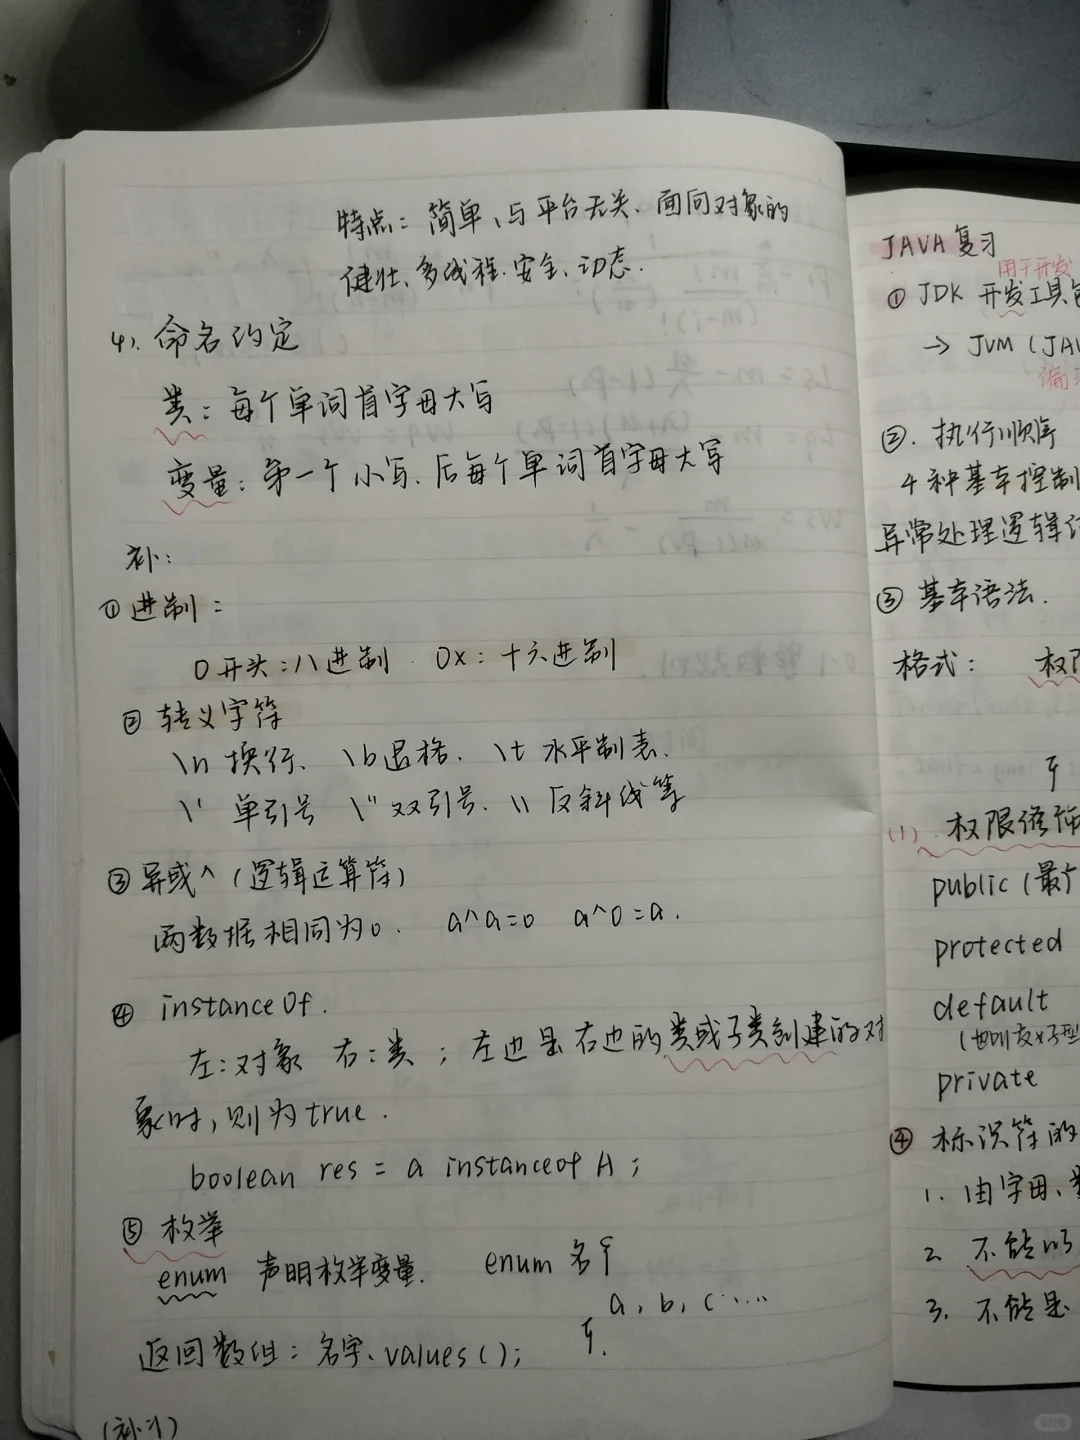 特点：简单、与平台无关、面向对象的
健壮、多线程、安全、动态.
4)、命名约定
类：每个单词首字母大写
变量：第一个小写、后每个单词首字母大写
补：
①进制：
0开头：八进制. 0x：十六进制
② 转义字符
\n 换行、 \b退格. \t 水平制表.
\' 单引号 \" 双引号、 \\ 反斜线等
③异或^（逻辑运算符）
两数据相同为0. a^a=0 a^0=a.
④ instanceOf.
左：对象 右：类；左边是右边的类或子类创建的对
象时，则为true.
boolean res = a instanceof A;
⑤ 枚举
enum 声明枚举变量. enum 名{
a, b, c.....
}.
返回数组：名字.values();
（补）
JAVA复习
用于开发
① JDK 开发工具包
→ JVM (JAV
编
②. 执行顺序
4种基本控制
异常处理逻辑
③ 基本语法.
格式： 权限
{
(1) 权限修饰
public (最广
protected
default
private
④ 标识符的
1. 由字母、数
2. 不能以
3. 不能是
小红书